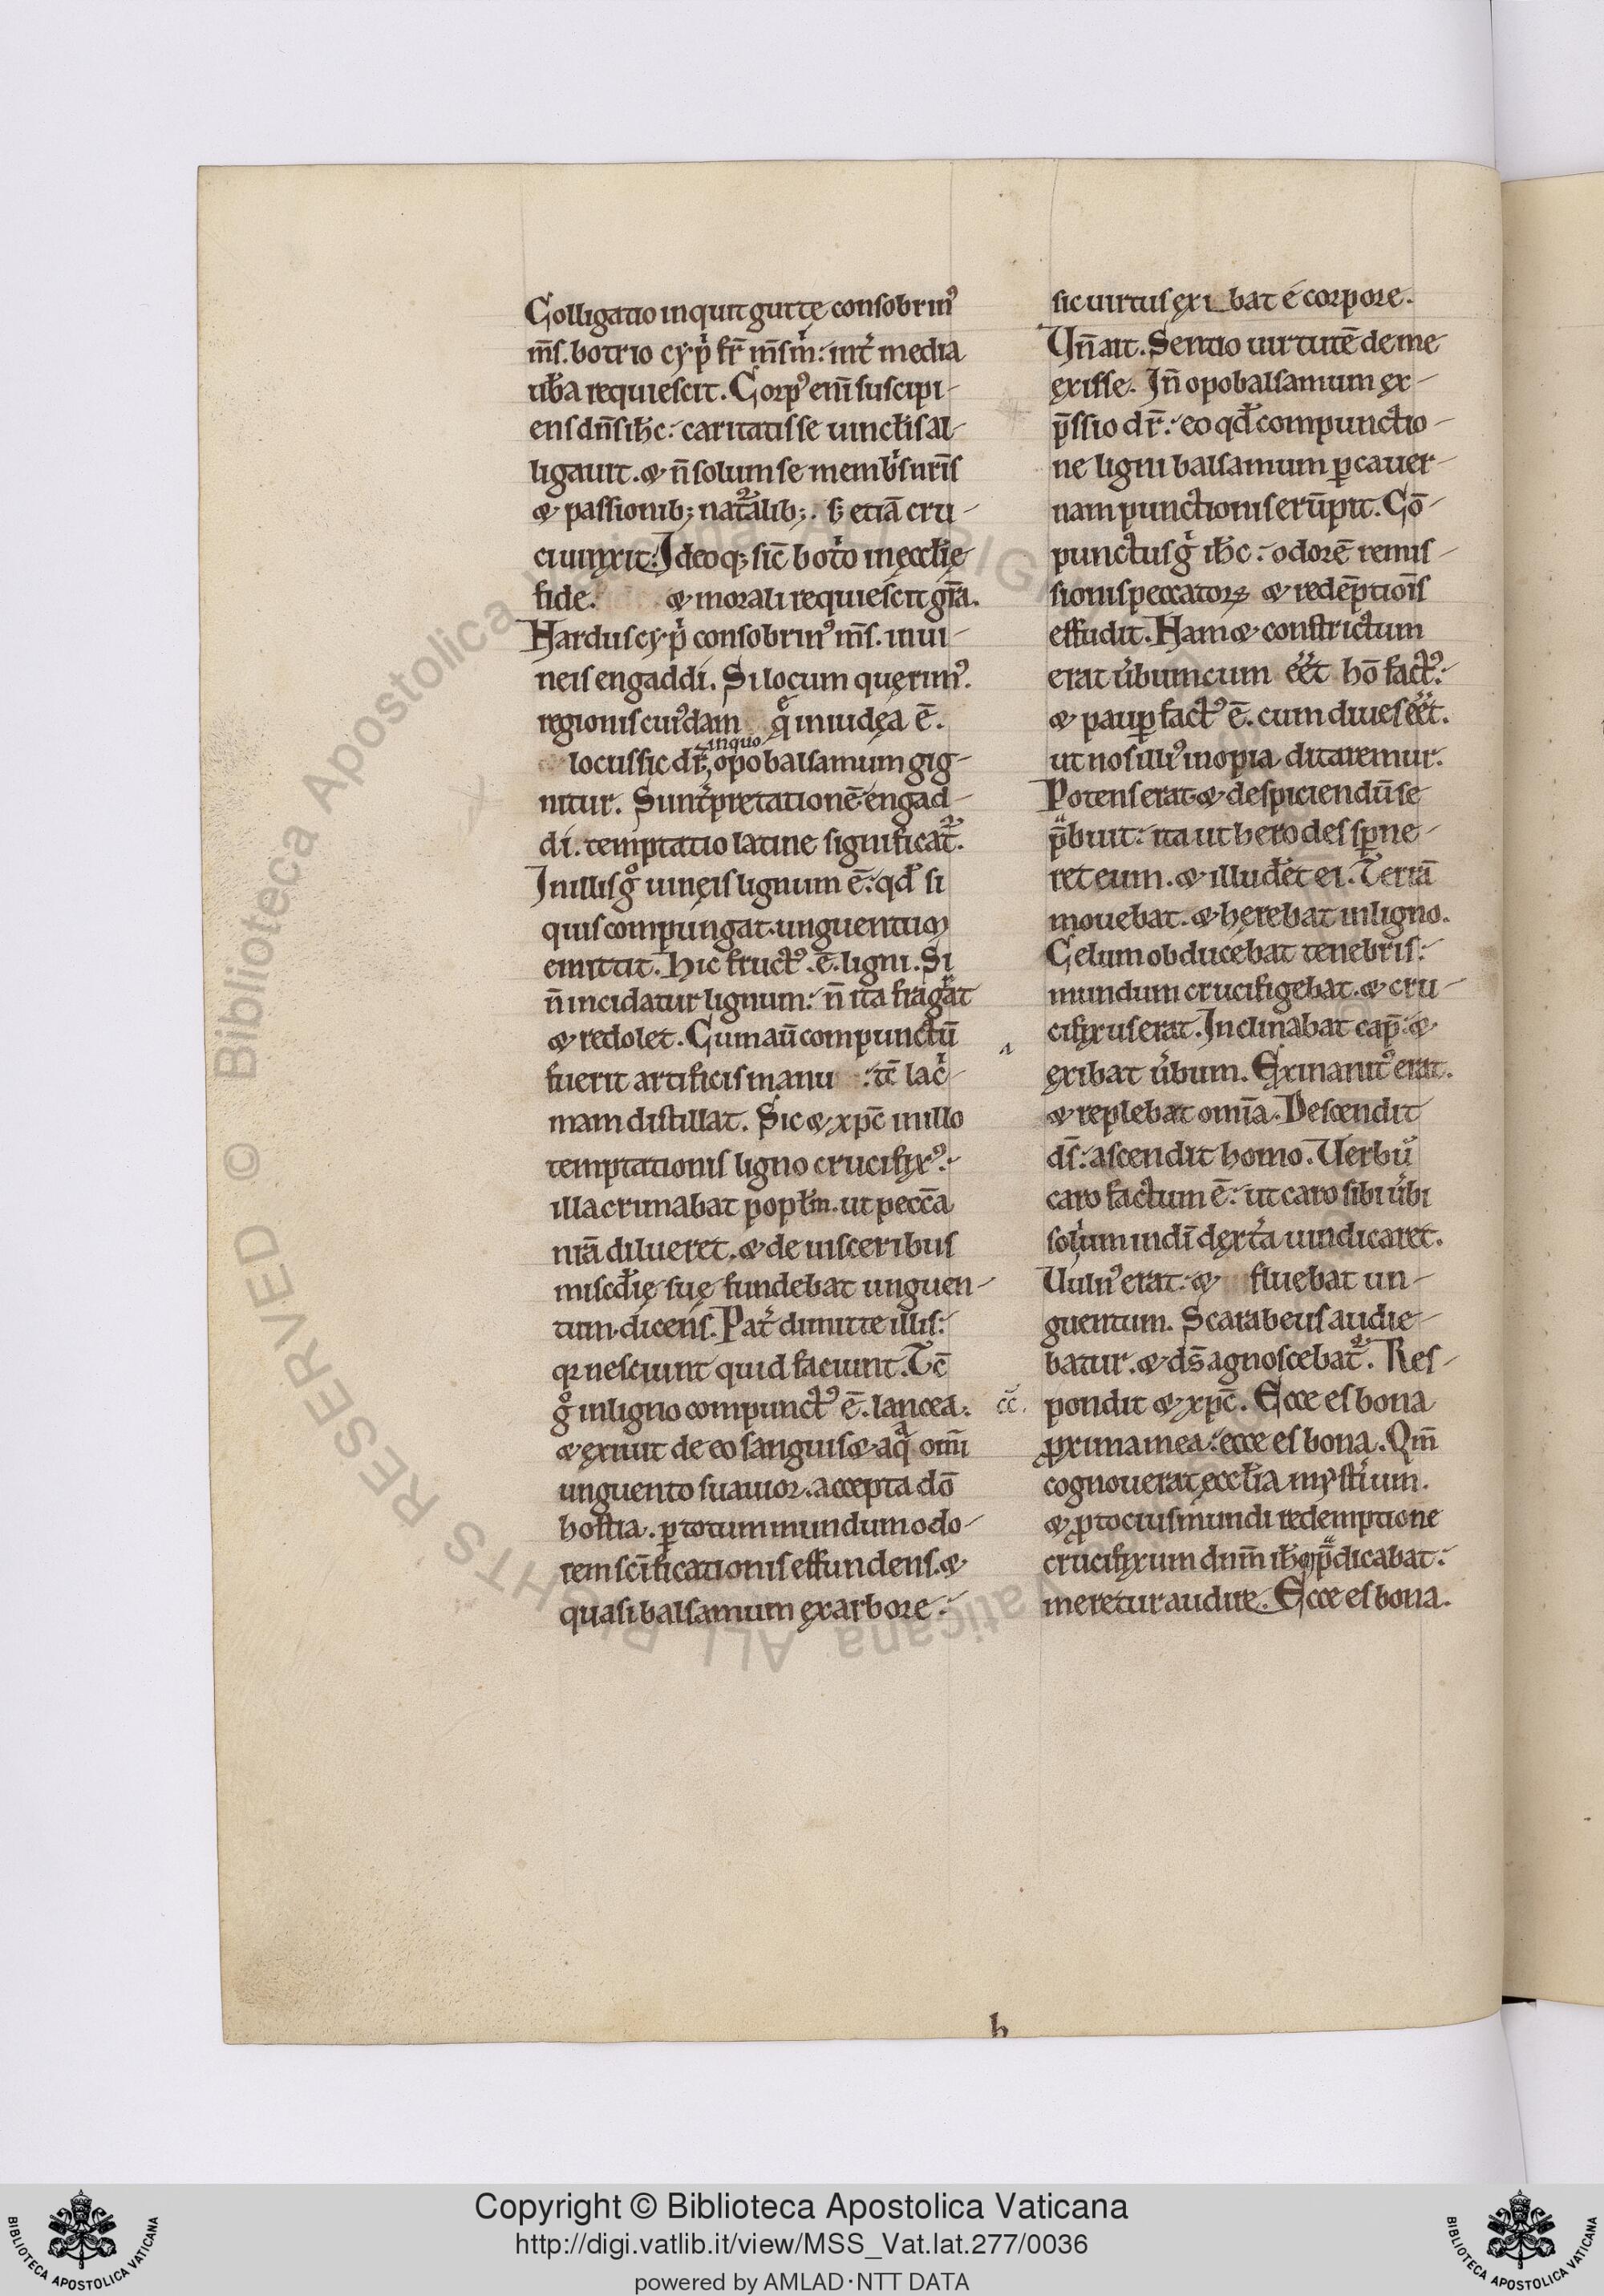 Colligatio inquit guttę consobrinꝰ
m̅s. botrio cypͥ fr̅ m̅s mͥ: int̾ media
ub̾a requiescit. Corpꝰ eni̅ suscipi-
ens dn̅s ih̅c: caritatis se uinclis al-
ligauit. & n̅ solum se membͥs nr̅is
& passionib; nat̾alib;. s; etia̅ cru-
ci uinxit. Ideoq; sic̅ botͥo in ęccl̅ię
fide. & morali requiescit gr̅a.
Nardus cypͥ consobrinꝰ m̅s. in ui-
neis engaddi. Si locum querimꝰ.
regionis cuiꝰdam q̨ͣ in iudęa e̅.
locus sic dr̅, opobalsamum gig-
inquo
nitur. Si int̾pretatione̅ engad-
di. temptatio latine significat̾.
In illis gͦ uinęis lignum e̅: qd̅ si
quis compungat. unguentum
emittit. Hic fructꝰ .e̅. ligni. Si
n̅ incidatur lignum: n̅ ita fragᷓat
& redolet. Cum au̅ compunctu̅
fuerit artificis manu : tc̅ lacͥ-
mam distillat. Sic & xpc̅ in illo
temptationis ligno crucifixꝰ:
illacrimabat popl̅m. ut pecc̅a
nr̅a dilueret. & de uisceribus
misc̅dię suę fundebat unguen-
tum. dicens. Pat̾ dimitte illis:
qꝛ nesciunt quid faciunt. Tc̅
gͦ in ligno compunctꝰ e̅. lancea.
& exiuit de eo sanguis & aqͣ omi̅
unguento suauior. accepta do̅
hostia. ꝑ totum mundum odo-
rem sc̅ificationis effundens. &
quasi balsamum ex arbore:
sic uirtus exi bat é corpore.
Un̅ ait. Sentio uirtute̅ de me
exisse. In̅ opobalsamum ex-
p̅ssio dr̅: eo qd̅ compunctio-
ne ligni balsamum ꝑ cauer-
nam punctionis eru̅pit. Co̅-
punctus gͥ ih̅c: odore̅ remis-
sionis peccatoꝝ & rede̅ptioi̅s
effudit. Nam & constrictum
erat ub̾um cum eet̾ ho̅ factꝰ:
& pauꝑ factꝰ e̅. cum diues eet̾.
ut nos illiꝰ inopia ditaremur.
Potens erat & despiciendu̅ se
p̅buit: ita ut herodes sꝑne-
ret eum. & illud̾et ei. Terra̅
mouebat. & hęrebat in ligno.
Celum obducebat tenebris:
mundum crucifigebat. & cru-
cifixus erat. Inclinabat cap̅: &
exibat ub̾um. Exinanitꝰ erat.
& replebat omi̅a. Descendit
ds̅: ascendit homo. Uerbu̅
caro factum e̅: ut caro sibi ub̾i
solium in di̅ dext̾a uindicaret.
Uulnꝰ erat: & fluebat un-
guentum. Scarabeus audie-
batur. & ds̅ agnoscebat̾. Res-
cc̅.
pondit & xpc̅. Ecce es bona
ꝓxima mea: ecce es bona. Qm̅
cognouerat ęccl̅ia mystͥium.
& ꝓ tocius mundi redemptione
crucifixum dnm̅ ih̅m p̅dicabat:
meretur audire. Ecce es bona.
h
Copyright © Biblioteca Apostolica Vaticana
http://digi.vatlib.it/view/MSS_Vat.lat.277/0036
powered by AMLAD·NTT DATA
BIBLIOTECA APOSTOLICA VATICANA
BIBLIOTECA APOSTOLICA VATICANA